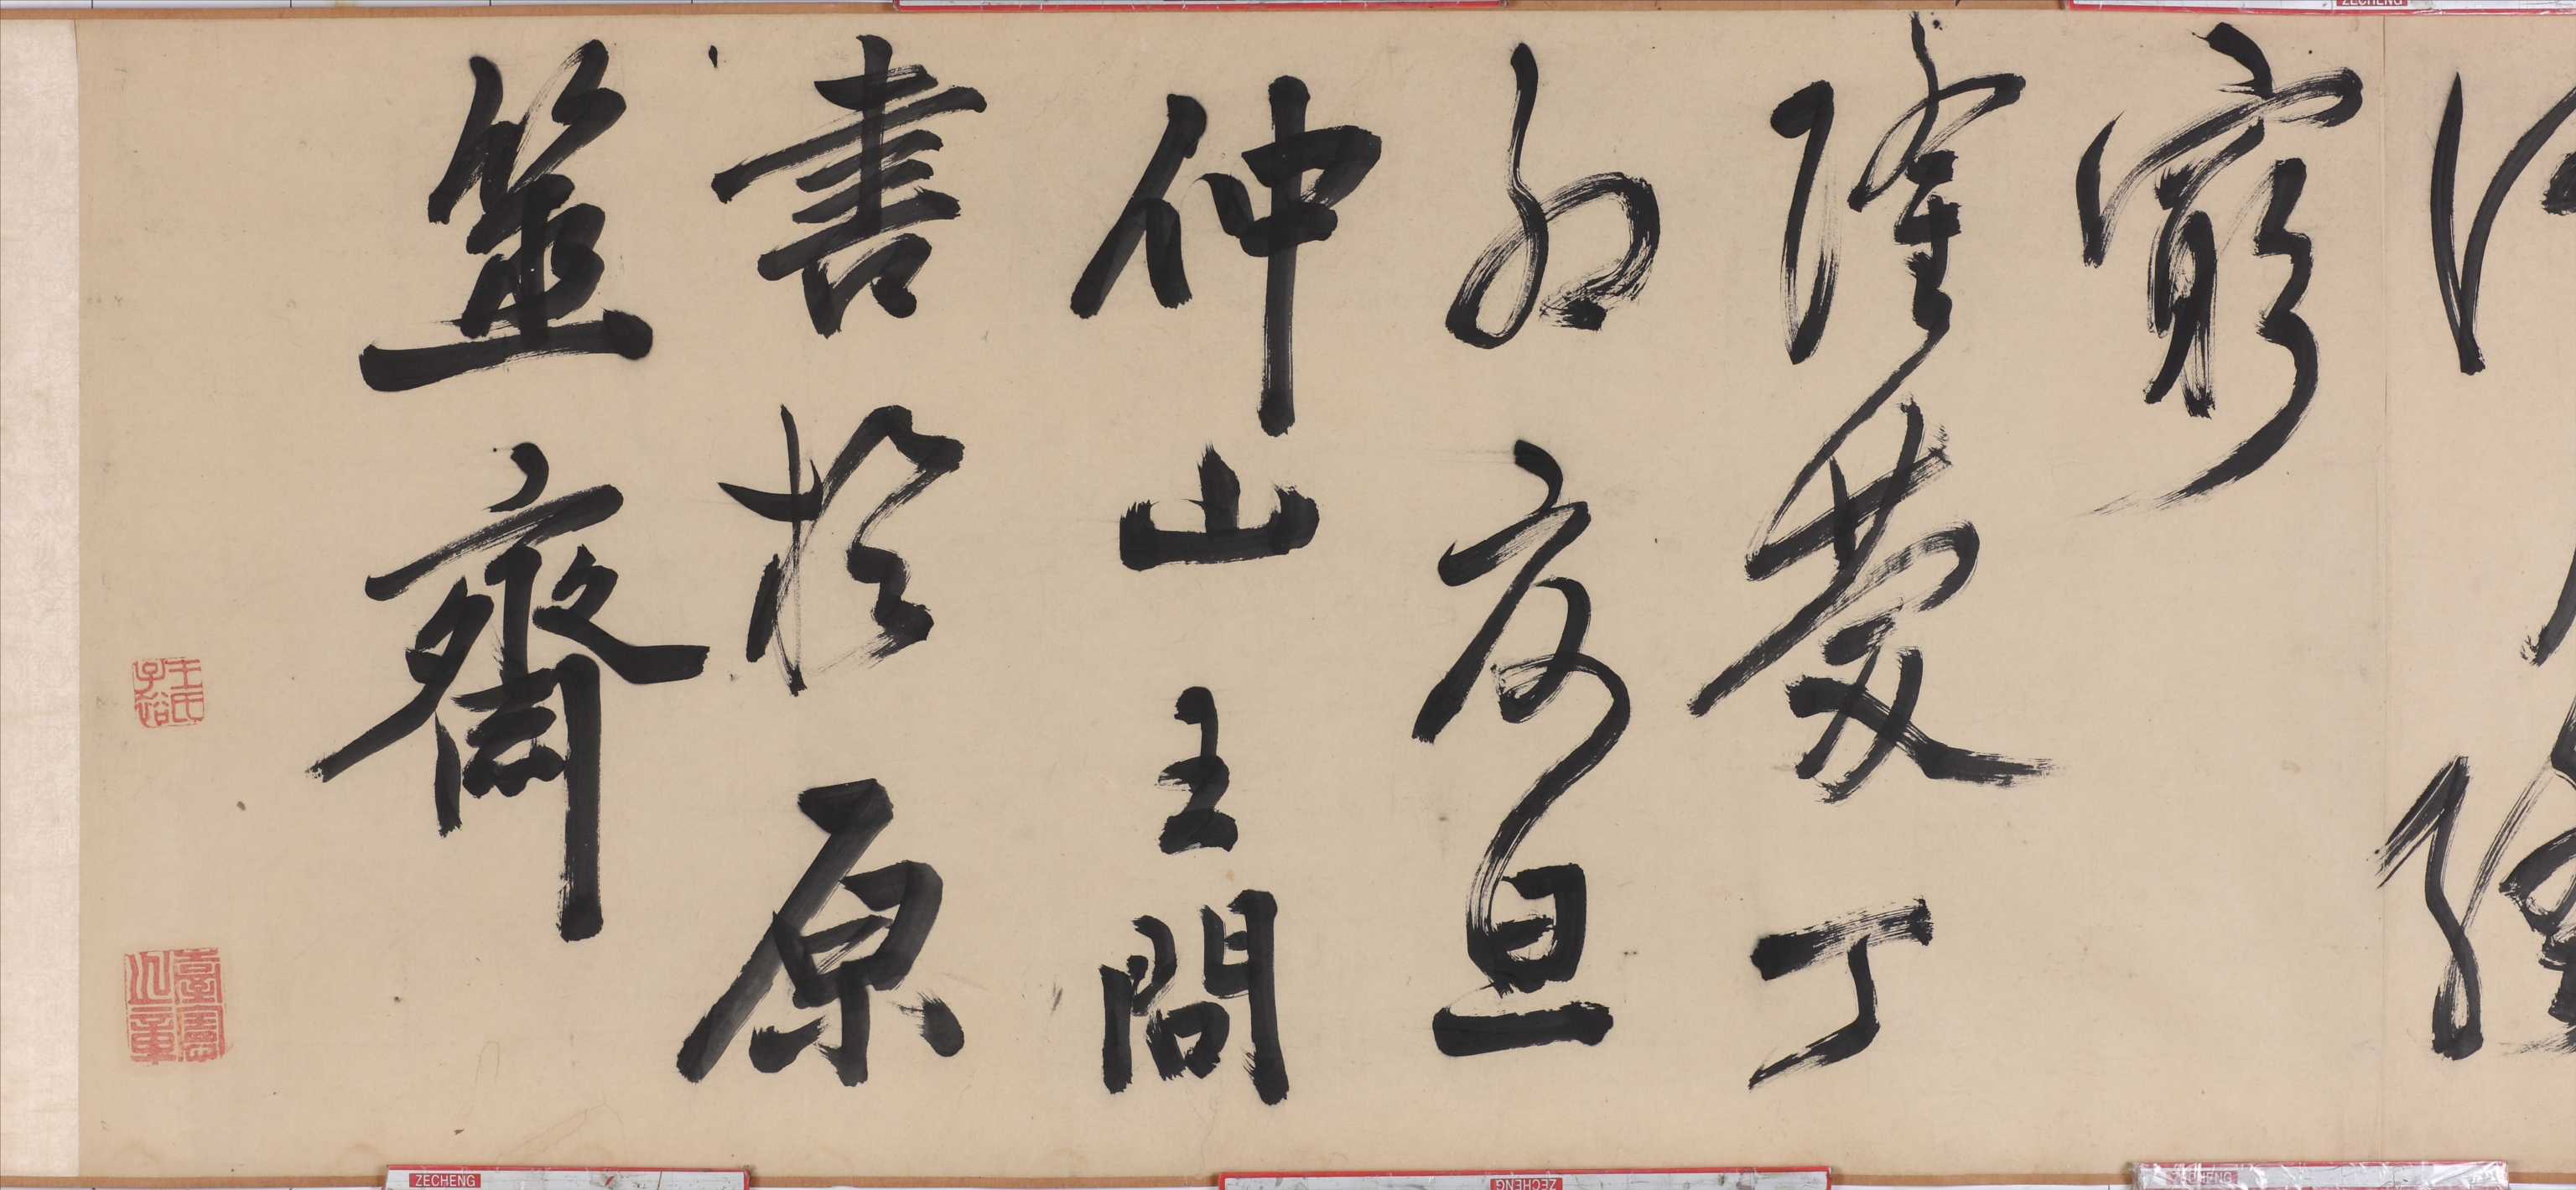 窮
隆慶丁
卯旦
仲山王問
書於原
筮齋
王氏子裕
臺憲之章
ZECHENG
ZECHENG
ZECHENG
ZECHENG